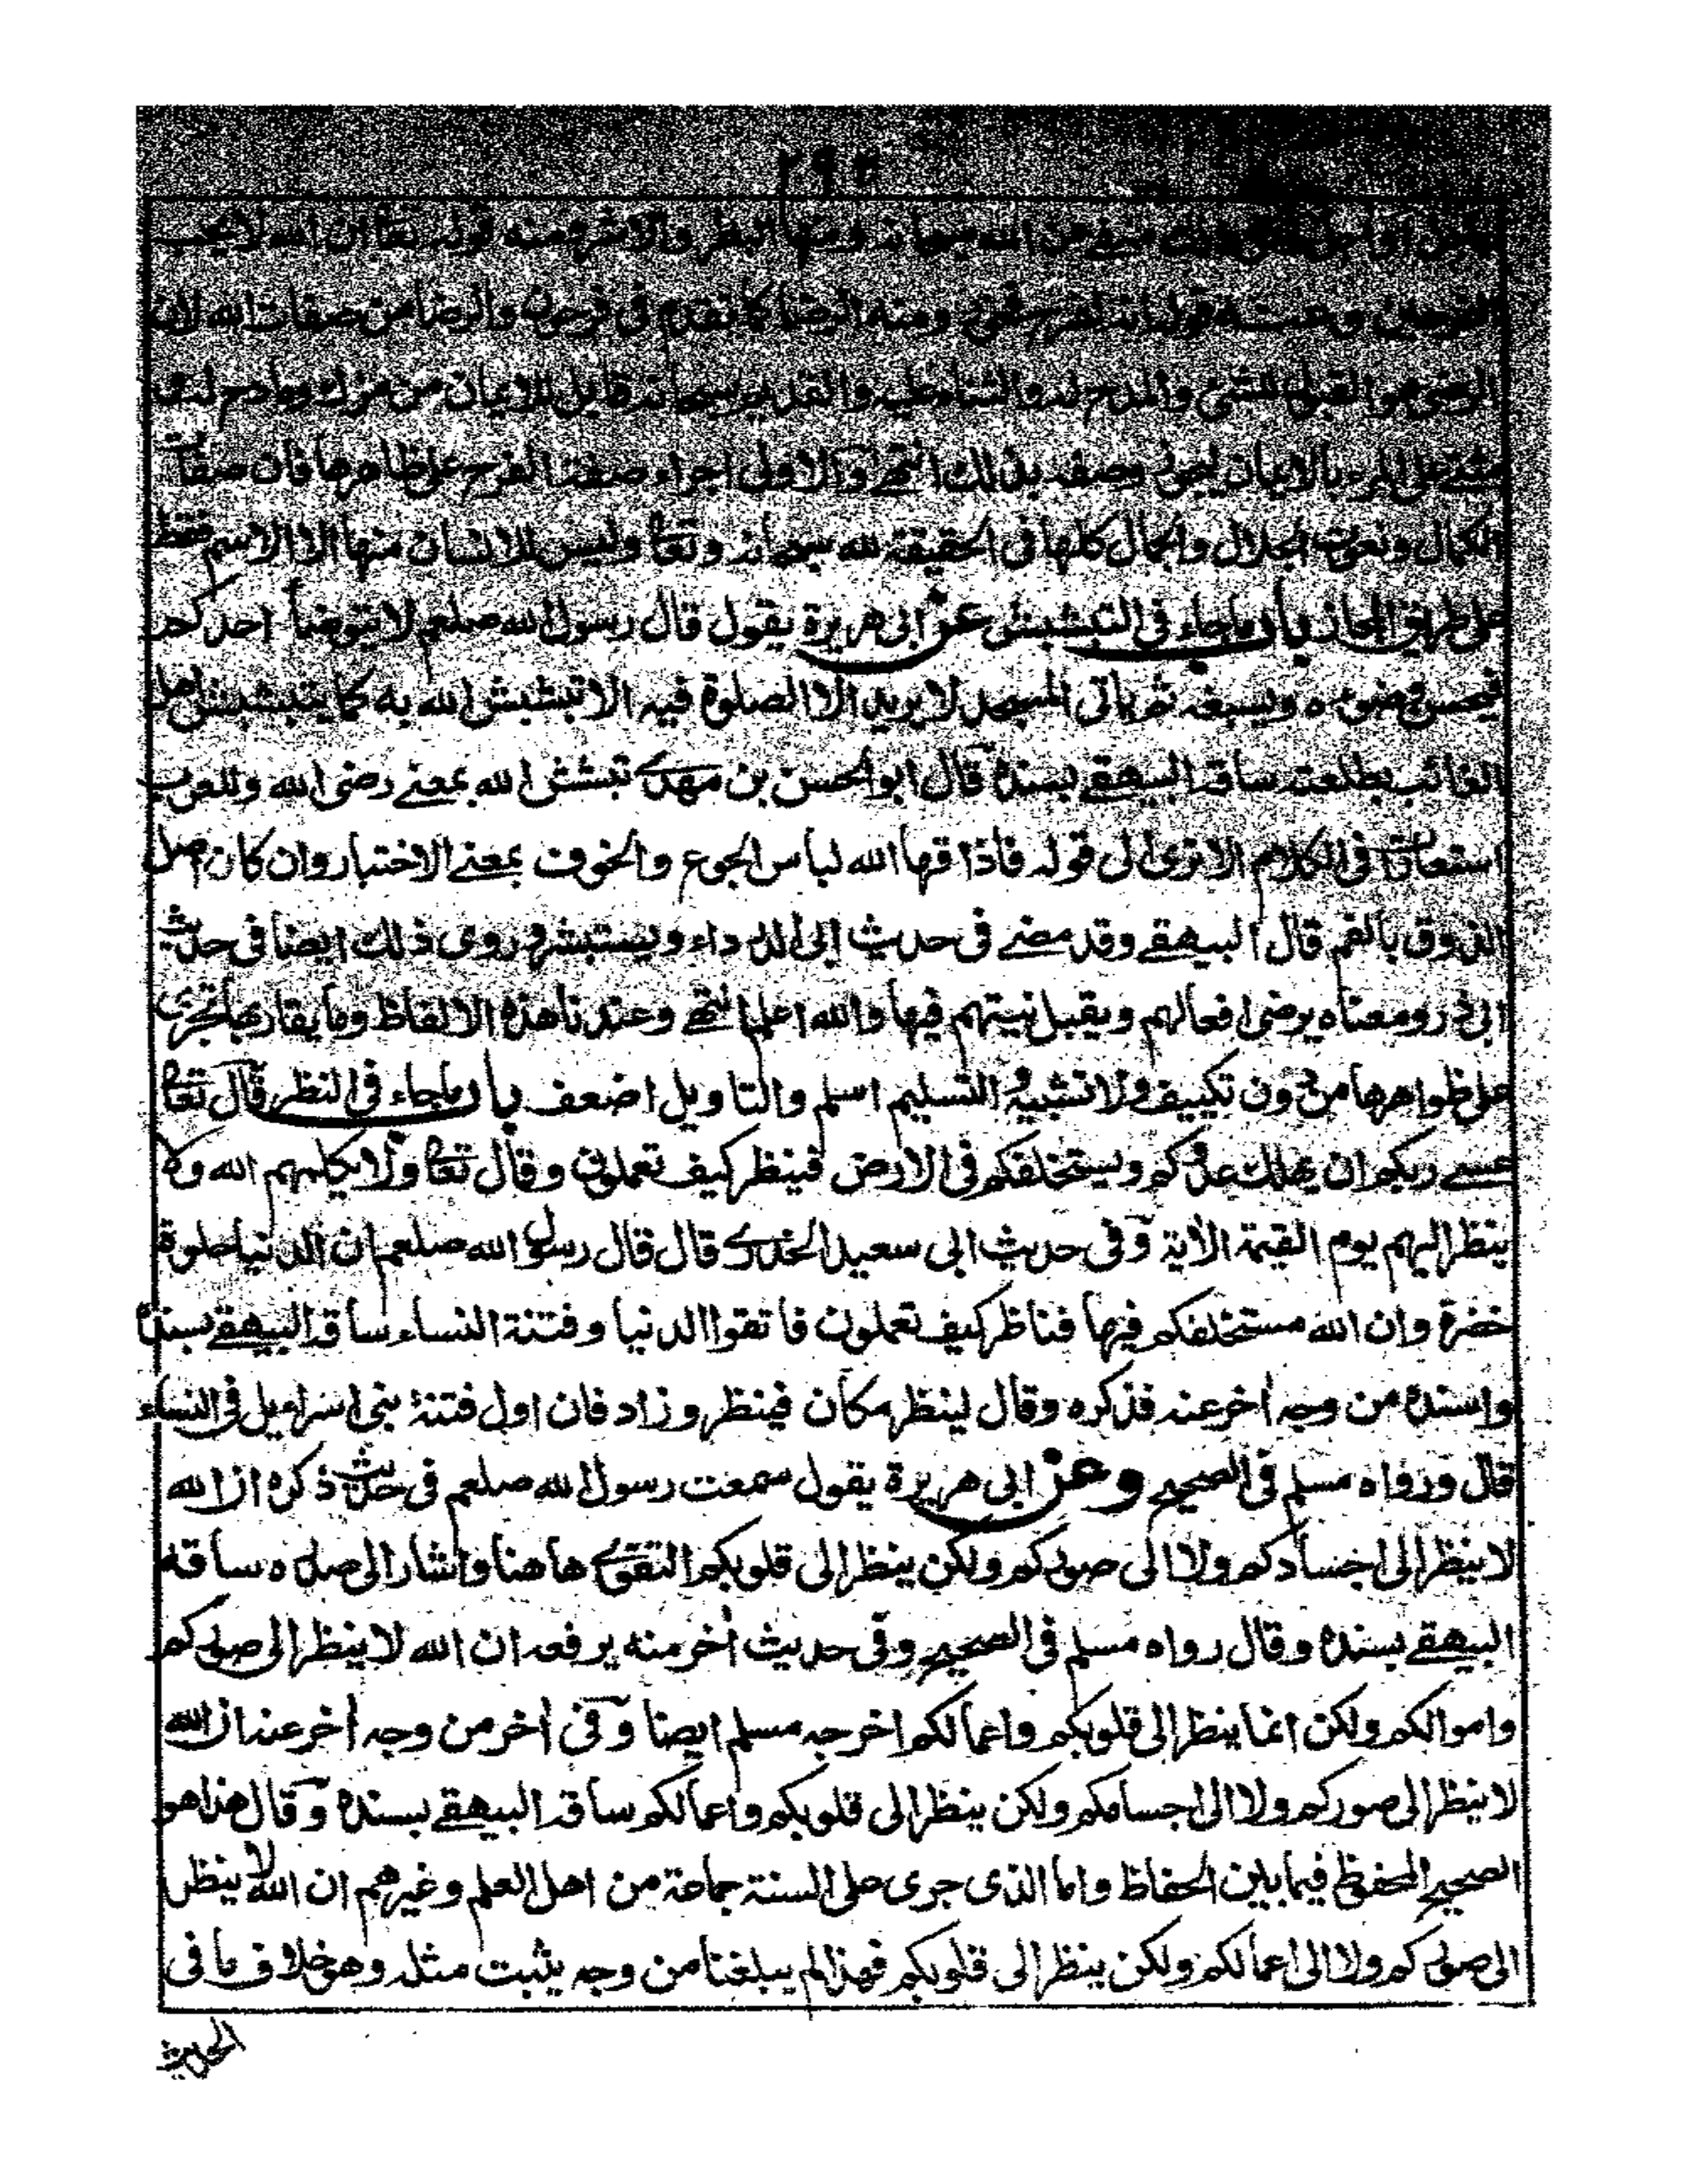 ٢٩٤
منفے عن الله سبحانه ومنها البطر والاشر ومنه قوله تعالى ان الله لا يحب
الفرحين ومنه الرضا كما تقدم فى فرحون والرضا من صفات الله لان
الرضى هو القبول للشئ والمدح له والثناء عليه والقديم سبحانه قابل للايمان من مزك ومادح له
مثنے على المرء بالايمان فيجوز وصفه بذلك انتهے والاولى اجراء صفة الفرح على ظاهرها فان صفات
الكمال ونعوت الجلال والجمال كلها فى الحقيقة لله سبحانه وتعالى وليس للانسان منها الا الاسم فقط
على طريق المجاز باب ماجاء فى التبشبش عن ابى هريرة يقول قال رسول الله صلعم لا يتوضأ احدكم
فيحسن وضوءه ويسبغه ثم ياتى المسجد لا يريد الا الصلوة فيه الا تبشبش الله به كما يتبشبش اهل
الغائب بطلعته ساقه البيهقے بسنده قال ابو الحسن بن مهدے تبشبش الله بمعنے رضى الله وللعرب
استعارات فى الكلام الا ترى الى قوله فاذاقها الله لباس الجوع والخوف بمعنے الاختبار وان كان اصل
الذوق بالفم قال البيهقے وقد مضے فى حديث ابى الدرداء ويستبشر وروى ذلك ايضا فى حديث
ابى ذر ومعناه يرضى افعالهم ويقبل نيتهم فيها والله اعلم انتهے وعندنا هذه الالفاظ وما يقاربها تجرى
على ظواهرها من دون تكييف ولا تشبيه والتسليم اسلم والتاويل اضعف باب ماجاء فى النظر قال تعالى
عسے ربكم ان يهلك عدوكم ويستخلفكم فى الارض فينظر كيف تعملون وقال تعالى ولا يكلمهم الله ولا
ينظر اليهم يوم القيمة الاية وفى حديث ابى سعيد الخدرے قال قال رسول الله صلعم ان الدنيا حلوة
خضرة وان الله مستخلفكم فيها فناظر كيف تعملون فاتقوا الدنيا وفتنة النساء ساقه البيهقے بسنده
واسنده من وجه اخر عنه فذكره وقال لينظر مكان فينظر وزاد فان اول فتنة بنى اسراءيل فى النساء
قال ورواه مسلم فى الصحيح وعن ابى هريرة يقول سمعت رسول الله صلعم فى حديث ذكره ان الله
لا ينظر الى اجسادكم ولا الى صوركم ولكن ينظر الى قلوبكم التقوے هاهنا واشار الى صدره ساقه
البيهقے بسنده وقال رواه مسلم فى الصحيح وفى حديث اخر منه يرفعه ان الله لا ينظر الى صوركم
واموالكم ولكن انما ينظر الى قلوبكم واعمالكم اخرجه مسلم ايضا وفى اخر من وجه اخر عنه ان الله
لا ينظر الى صوركم ولا الى اجسامكم ولكن ينظر الى قلوبكم واعمالكم ساقه البيهقے بسنده وقال هذا هو
الصحيح المحفوظ فيما بين الحفاظ واما الذى جرى على السنة جماعة من اهل العلم وغيرهم ان الله لا ينظر
الى صوركم ولا الى اعمالكم ولكن ينظر الى قلوبكم فهذا لم يبلغنا من وجه يثبت مثله وهو خلاف ما فى
الحديث